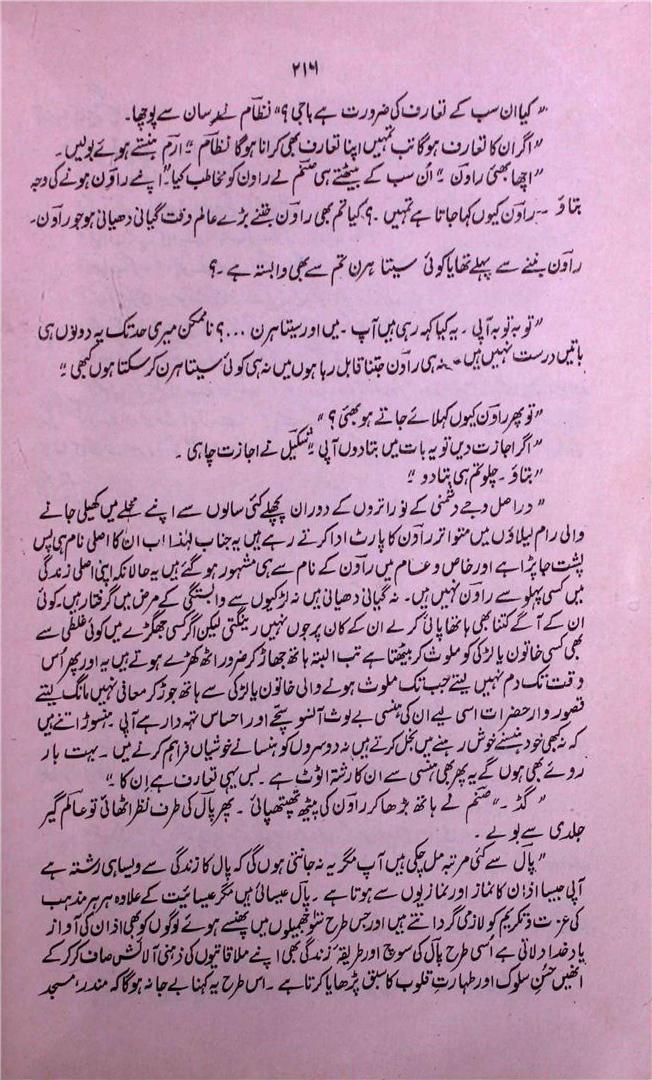 ۲۱۶
”کیا ان سب کے تعارف کی ضرورت ہے باجی؟“ نظام نے رسان سے پوچھا۔
”اگر ان کا تعارف ہوگا تب تمہیں اپنا تعارف بھی کرانا ہوگا نظام“ ارم ہنستے ہوئے بولیں۔
”اچھا بھئی راون“ ان سب کے بیٹھتے ہی صنم نے راون کو مخاطب کیا۔ ”اپنے راون ہونے کی وجہ
بتاؤ ۔۔ راون کیوں کہا جاتا ہے تمہیں ۔؟ کیا تم بھی راون جتنے بڑے عالم وقت گیانی دھیانی ہو جو راون۔
راون بننے سے پہلے تھا یا کوئی سیتا ہرن تم سے بھی وابستہ ہے ۔؟
”توبہ توبہ آپی ۔ یہ کیا کہہ رہی ہیں آپ ۔ میں اور سیتا ہرن ...؟ ناممکن میری حد تک یہ دونوں ہی
باتیں درست نہیں ہیں۔ نہ ہی راون جتنا قابل رہا ہوں میں نہ ہی کوئی سیتا ہرن کر سکتا ہوں کبھی“
”تو پھر راون کیوں کہلائے جاتے ہو بھئی؟“
”اگر اجازت دیں تو یہ بات میں بتا دوں آپی“ شکیل نے اجازت چاہی ۔
”بتاؤ ۔ چلو تم ہی بتا دو“
”دراصل وجے دشمی کے نوراتروں کے دوران پچھلے کئی سالوں سے اپنے محلے میں کھیلی جانے
والی رام لیلاؤں میں متواتر راون کا پارٹ ادا کرتے رہے ہیں یہ جناب لہٰذا اب ان کا اصلی نام ہی پس
پشت جا پڑا ہے اور خاص و عام میں راون کے نام سے ہی مشہور ہو گئے ہیں یہ حالانکہ اپنی اصلی زندگی
میں کسی پہلو سے راون نہیں ہیں۔ نہ گیانی دھیانی ہیں نہ لڑکیوں سے وابستگی کے مرض میں گرفتار ہیں۔ کوئی
ان کے آگے کتنا بھی ہاتھا پائی کر لے ان کے کان پر جوں نہیں رینگتی لیکن اگر کسی جھگڑے میں کوئی غلطی سے
بھی کسی خاتون یا لڑکی کو ملوث کر بیٹھتا ہے تب البتہ ہاتھ جھاڑ کر ضرور اٹھ کھڑے ہوتے ہیں یہ اور پھر اُس
وقت تک دم نہیں لیتے جب تک ملوث ہونے والی خاتون یا لڑکی سے ہاتھ جوڑ کر معافی نہیں مانگ لیتے
قصوروار حضرات اسی لیے ان کی ہنسی بے لوث آنسو سچے اور احساس تہہ دار ہے آپی۔ ہنسوڑ اتنے ہیں
کہ نہ بھی خود ہنسنے خوش رہنے میں بخل کرتے ہیں نہ دوسروں کو ہنسانے خوشیاں فراہم کرنے میں۔ بہت بار
روئے بھی ہوں گے یہ پھر بھی ہنسی سے ان کا رشتہ اٹوٹ ہے ۔ بس یہی تعارف ہے اِن کا۔“
”گڈ۔“ صنم نے ہاتھ بڑھا کر راون کی پیٹھ تھپتھپائی ۔ پھر پال کی طرف نظر اٹھائی تو عالمگیر
جلدی سے بولے ۔
”پال سے کئی مرتبہ مل چکی ہیں آپ مگر یہ نہ جانتی ہوں گی کہ پال کا زندگی سے ویسا ہی رشتہ ہے
آپی جیسا اذان کا نماز اور نمازیوں سے ہوتا ہے ۔ پال عیسائی ہیں مگر عیسائیت کے علاوہ ہر ہر مذہب
کی عزت و تکریم کو لازمی گردانتے ہیں اور جس طرح سَو جھمیلوں میں پھنسے ہوئے لوگوں کو بھی اذان کی آواز
یاد خدا دلاتی ہے اسی طرح پال کی سوچ اور طریقۂ زندگی بھی اپنے ملاقاتیوں کی ذہنی آلائش صاف کر کر کے
انھیں حُسنِ سلوک اور طہارتِ قلوب کا سبق پڑھایا کرتا ہے ۔ اس طرح یہ کہنا بے جا نہ ہوگا کہ مندر، مسجد